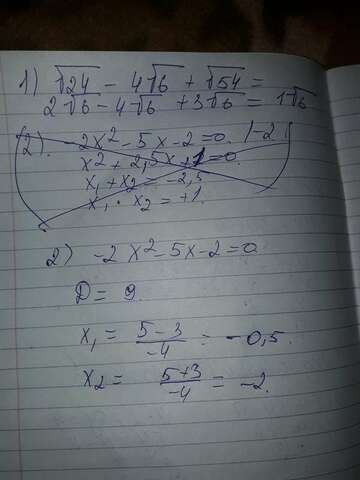 1) √24 - 4√6 + √54 =
2√6 - 4√6 + 3√6 = 1√6
(2). -2x² - 5x - 2 = 0. |-2|
x² + 2,5x + 1 = 0.
x₁ + x₂ = -2,5
x₁ · x₂ = +1.
2) -2x² - 5x - 2 = 0
D = 9.
x₁ = (5-3)/-4 = -0,5.
x₂ = (5+3)/-4 = -2.